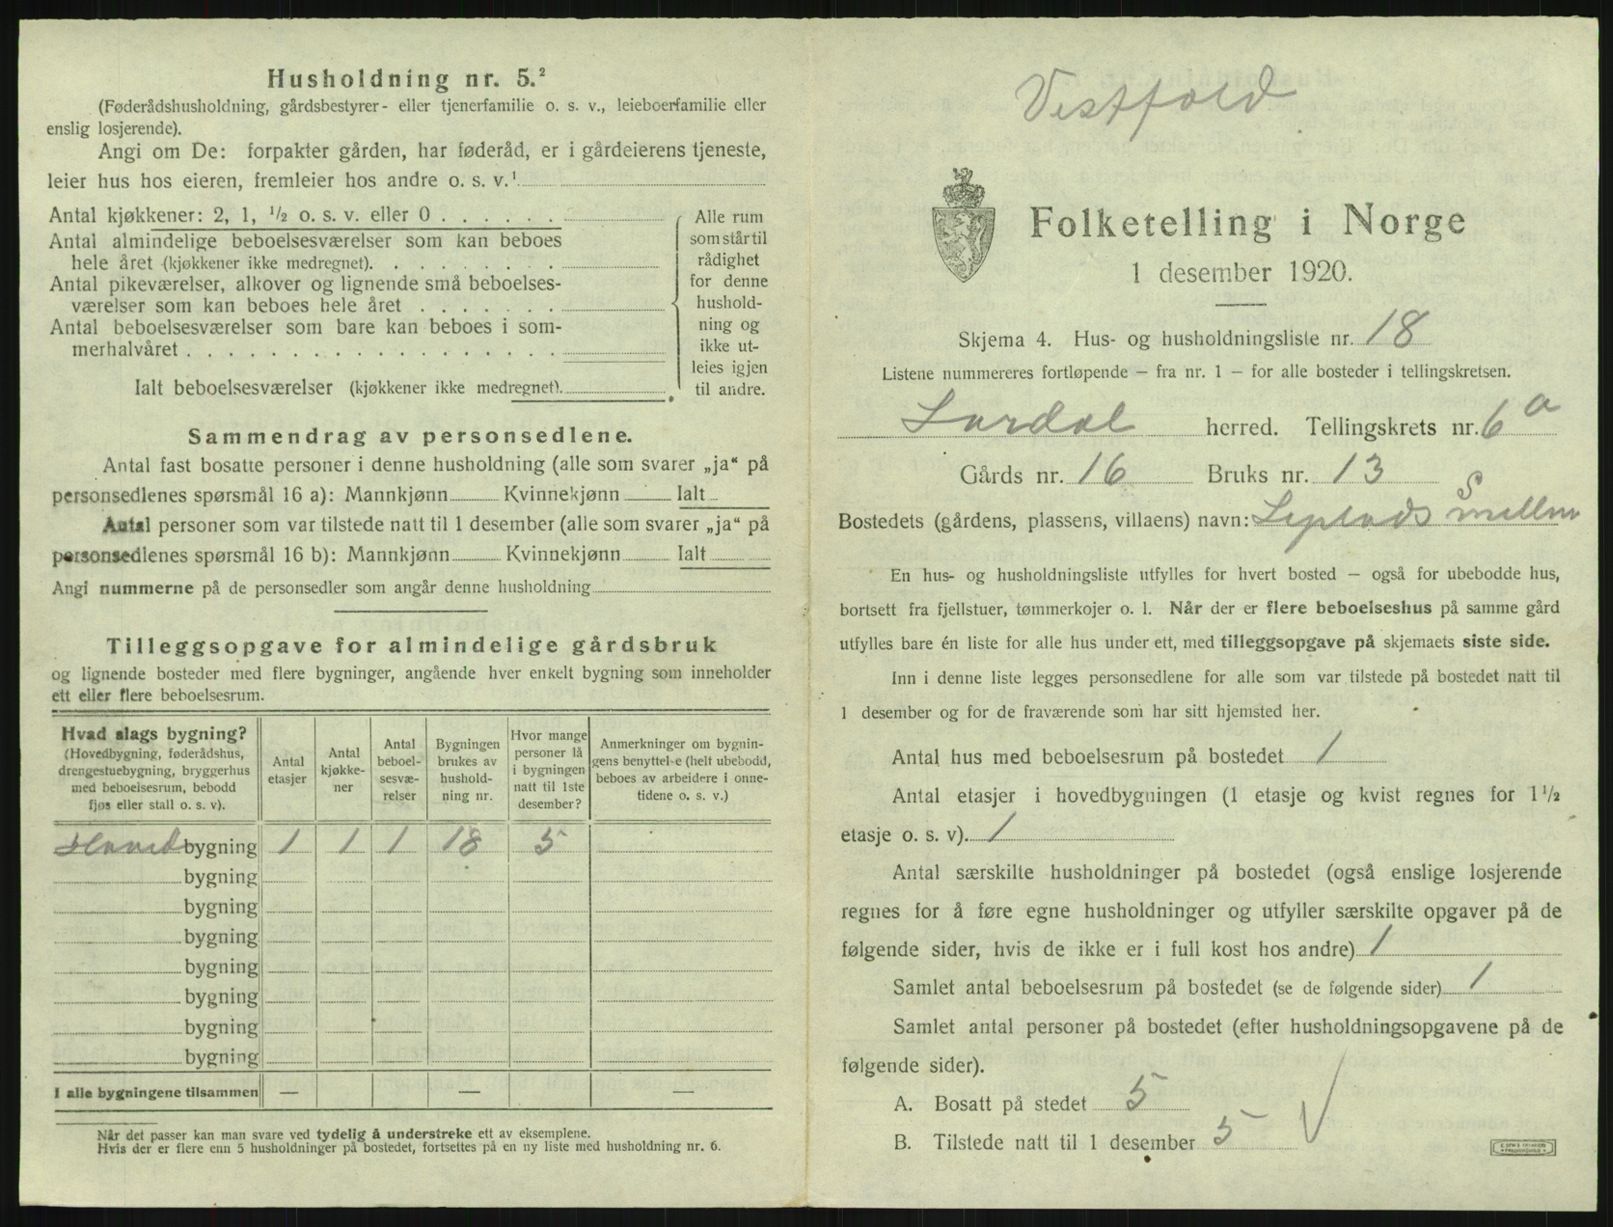 Husholdning nr. 5.²
(Føderådshusholdning, gårdsbestyrer- eller tjenerfamilie o. s. v., leieboerfamilie eller
enslig losjerende).
Angi om De: forpakter gården, har føderåd, er i gårdeierens tjeneste,
leier hus hos eieren, fremleier hos andre o. s. v.¹
Antal kjøkkener: 2, 1, ¹/₂ o. s. v. eller 0
Antal almindelige beboelsesværelser som kan beboes
hele året (kjøkkener ikke medregnet).
Antal pikeværelser, alkover og lignende små beboelses-
værelser som kan beboes hele året
Antal beboelsesværelser som bare kan beboes i som-
merhalvåret
Ialt beboelsesværelser (kjøkkener ikke medregnet).
Alle rum
som står til
rådighet
for denne
hushold-
ning og
ikke ut-
leies igjen
til andre.
Sammendrag av personsedlene.
Antal fast bosatte personer i denne husholdning (alle som svarer „ja“ på
personsedlenes spørsmål 16 a): Mannkjønn Kvinnekjønn Ialt
Antal personer som var tilstede natt til 1 desember (alle som svarer „ja“ på
personsedlenes spørsmål 16 b): Mannkjønn Kvinnekjønn Ialt
Angi nummerne på de personsedler som angår denne husholdning
Tilleggsopgave for almindelige gårdsbruk
og lignende bosteder med flere bygninger, angående hver enkelt bygning som inneholder
ett eller flere beboelsesrum.
Hvad slags bygning?
(Hovedbygning, føderådshus,
drengestuebygning, bryggerhus
med beboelsesrum, bebodd
fjøs eller stall o. s. v).
Antal
etasjer
Antal
kjøkke-
ner
Antal
beboel-
sesvæ-
relser
Bygningen
brukes av
hushold-
ning nr.
Hvor mange
personer lå
i bygningen
natt til 1ste
desember?
Anmerkninger om bygnin-
gens benyttelse (helt ubebodd,
beboes av arbeidere i onne-
tidene o. s. v.)
Hovedbygning 1 1 1 18 5
bygning
bygning
bygning
bygning
bygning
bygning
bygning
I alle bygningene tilsammen — — —
Når det passer kan man svare ved tydelig å understreke ett av eksemplene.
Hvis der er flere enn 5 husholdninger på bostedet, fortsettes på en ny liste med husholdning nr. 6.
Vestfold
Folketelling i Norge
1 desember 1920.
Skjema 4. Hus- og husholdningsliste nr. 18
Listene nummereres fortløpende — fra nr. 1 — for alle bosteder i tellingskretsen.
Lardal herred. Tellingskrets nr. 6a
Gårds nr. 16 Bruks nr. 13
Bostedets (gårdens, plassens, villaens) navn:
En hus- og husholdningsliste utfylles for hvert bosted — også for ubebodde hus,
bortsett fra fjellstuer, tømmerkojer o. l. Når der er flere beboelseshus på samme gård
utfylles bare én liste for alle hus under ett, med tilleggsopgave på skjemaets siste side.
Inn i denne liste legges personsedlene for alle som var tilstede på bostedet natt til
1 desember og for de fraværende som har sitt hjemsted her.
Antal hus med beboelsesrum på bostedet 1
Antal etasjer i hovedbygningen (1 etasje og kvist regnes for 1¹/₂
etasje o. s. v). 1
Antal særskilte husholdninger på bostedet (også enslige losjerende
regnes for å føre egne husholdninger og utfyller særskilte opgaver på de
følgende sider, hvis de ikke er i full kost hos andre) 1
Samlet antal beboelsesrum på bostedet (se de følgende sider) 1
Samlet antal personer på bostedet (efter husholdningsopgavene på de
følgende sider).
A. Bosatt på stedet 5
B. Tilstede natt til 1 desember 5